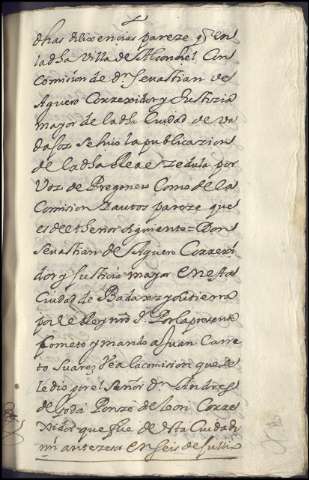 dhas dilixencias pareze q en
la dha Villa de Alconchel Con
Comision de Dn Sevastian de
Aguero Correxidor y Justizia
mayor de la dha Ciudad de Ba
dajoz se hizo la publicazion
de la dha Real zedula por
Voz de Pregonero Como de la
Comision Y autos pareze que
es de el thenor siguiente = Don
Sevastian de Aguero Correxi
dor y Justicia mayor en esta
Ciudad de Badaxoz y su tierra
por el Rey nro Sr Por la presente
Cometo y mando a Juan Carre
to Suarez Vea la comision que se
le dio por el Señor Dn Andres
de Ponze de leon Corre
xidor que fue de esta Ciudad
mi antezesor en seis de Jullio